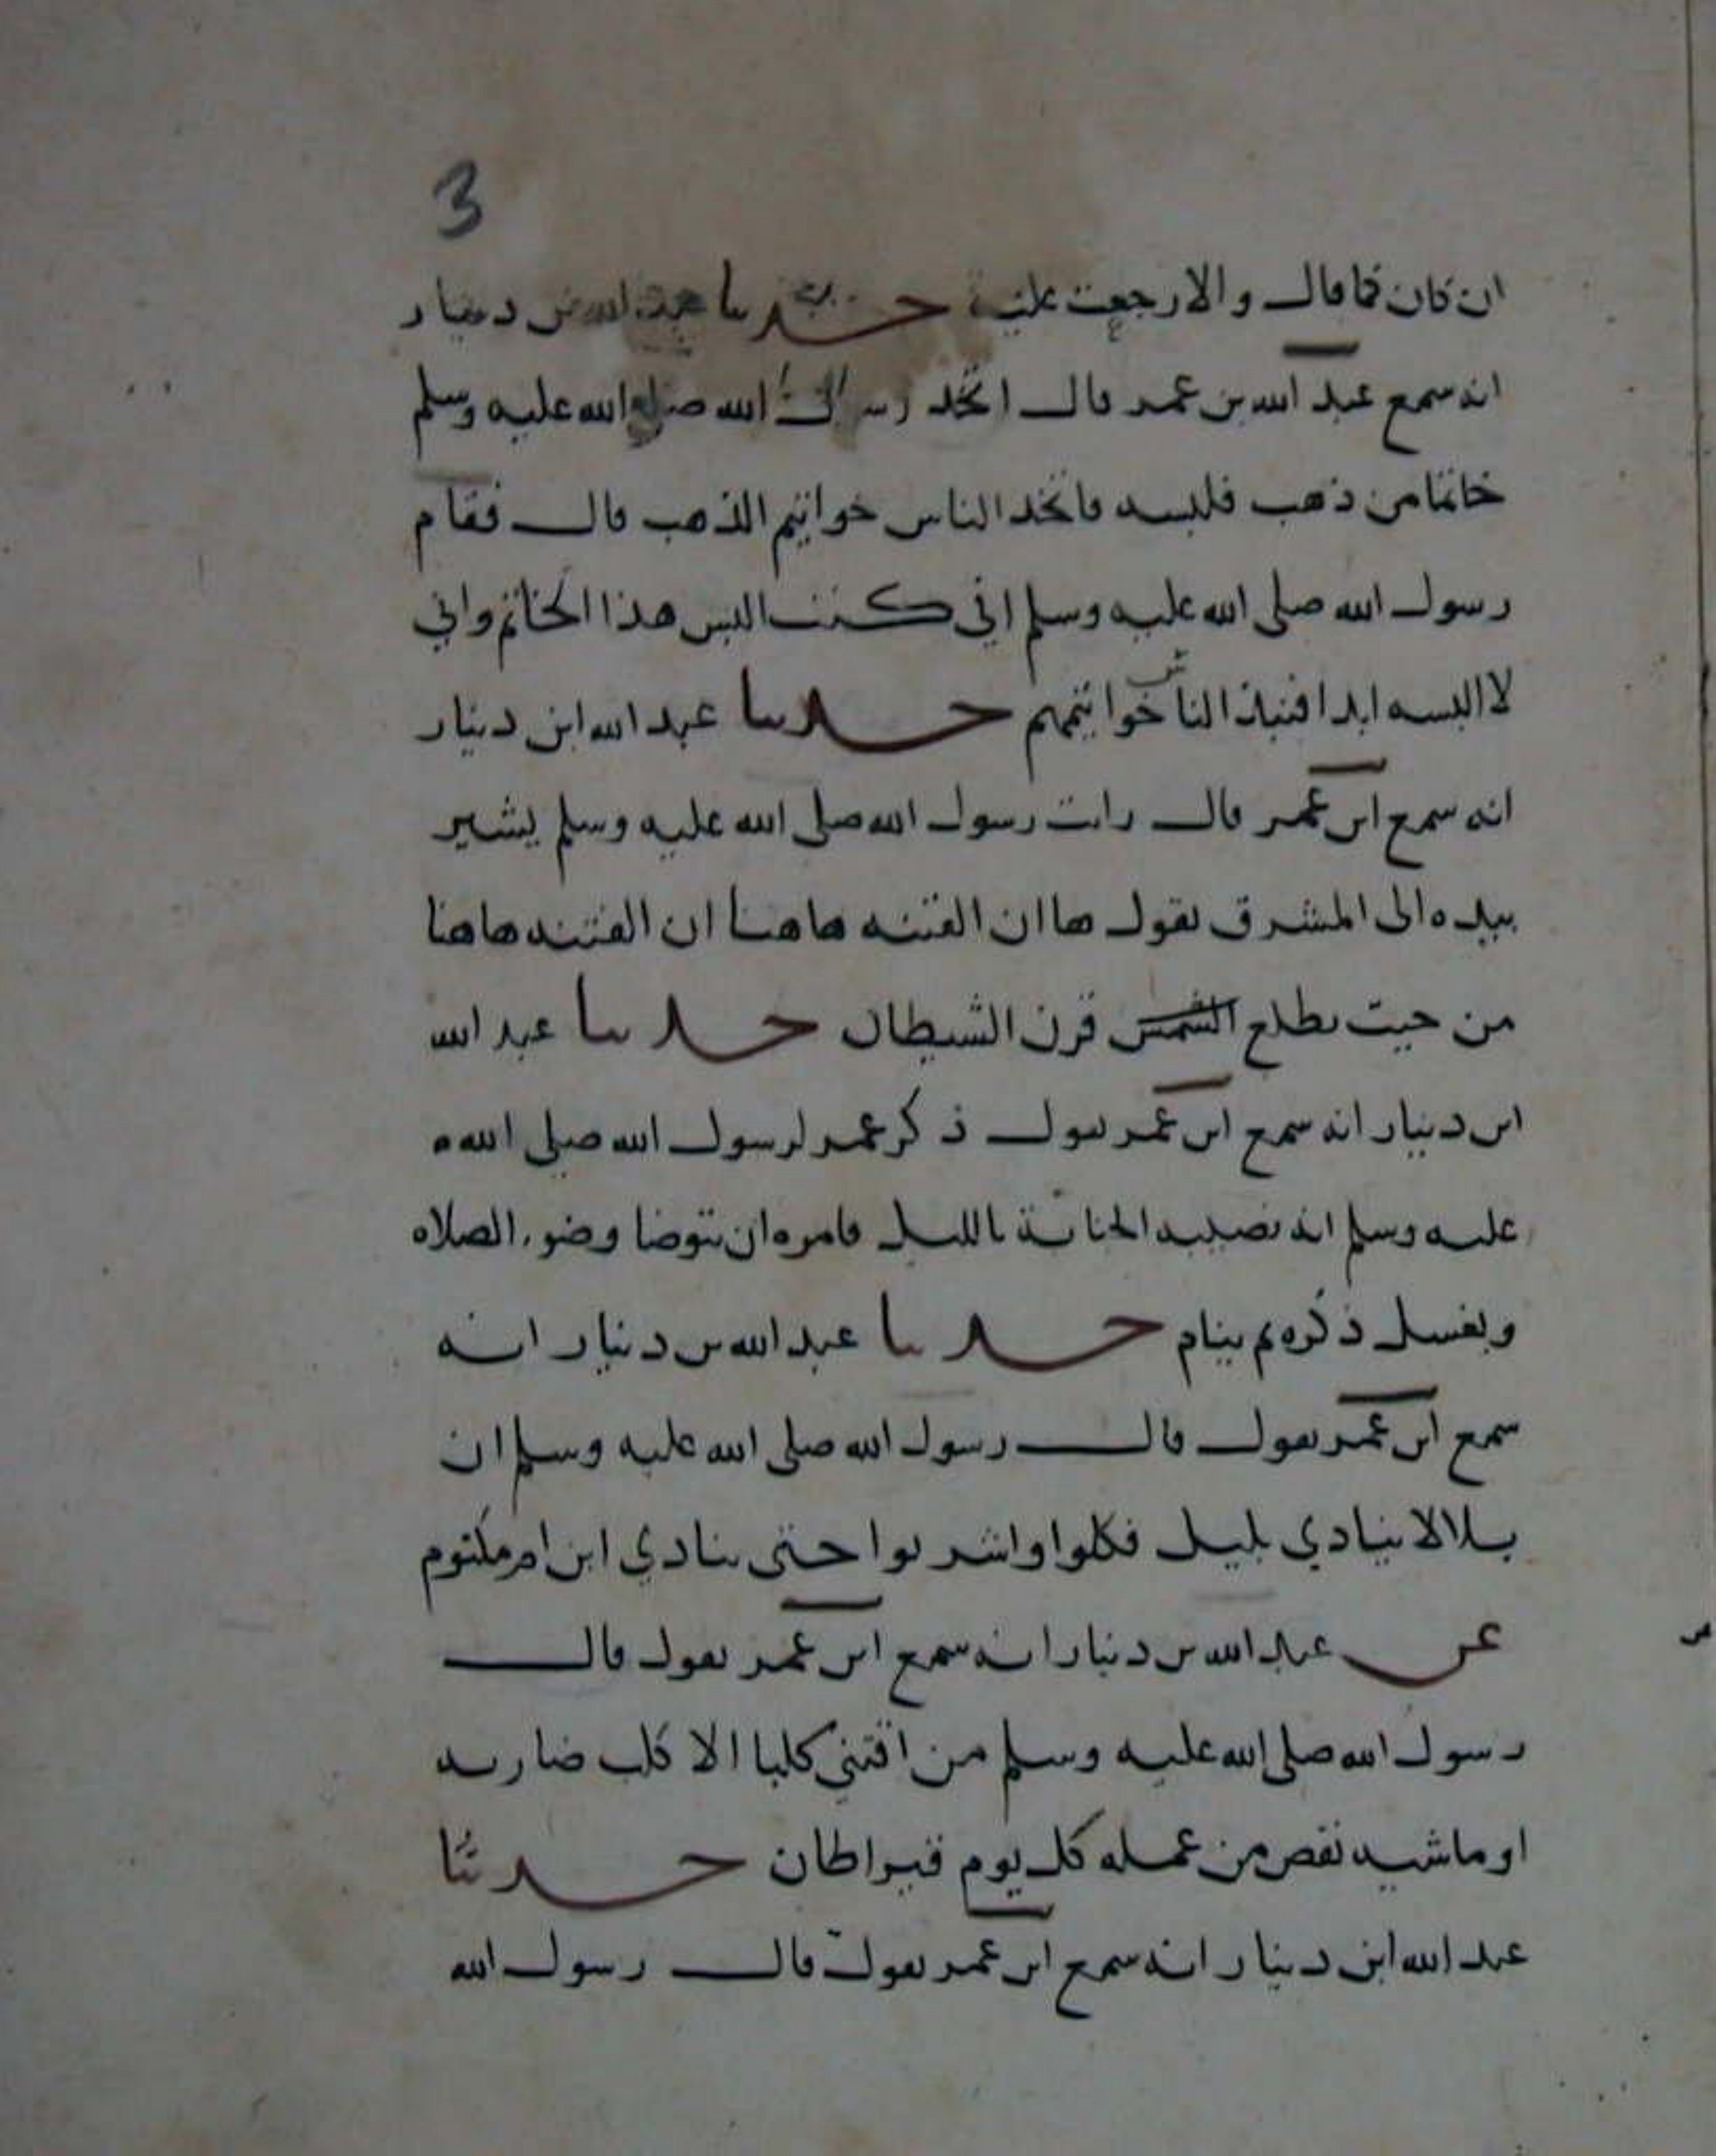 3
ان كان كما قال والا رجعت عليه حدثنا عبد الله بن دينار
انه سمع عبد الله بن عمر قال اتخذ رسول الله صلى الله عليه وسلم
خاتما من ذهب فلبسه فاتخذ الناس خواتيم الذهب قال فقام
رسول الله صلى الله عليه وسلم اني كنت البس هذا الخاتم واني
لا البسه ابدا فنبذ الناس خواتيمهم حدثنا عبد الله ابن دينار
انه سمع ابن عمر قال رايت رسول الله صلى الله عليه وسلم يشير
بيده الى المشرق يقول ها ان الفتنه هاهنا ان الفتنه هاهنا
من حيث يطلع الشمس قرن الشيطان حدثنا عبد الله
ابن دينار انه سمع ابن عمر يقول ذكر عمر لرسول الله صلى الله
عليه وسلم انه تصيبه الجنابة بالليل فامره ان يتوضا وضوء الصلاه
ويغسل ذكره ثم ينام حدثنا عبد الله بن دينار انه
سمع ابن عمر يقول قال رسول الله صلى الله عليه وسلم ان
بلالا ينادي بليل فكلوا واشربوا حتى ينادي ابن ام مكتوم
عن عبد الله بن دينار انه سمع ابن عمر يقول قال
رسول الله صلى الله عليه وسلم من اقتنى كلبا الا كلب ضاريه
او ماشيه نقص من عمله كل يوم قيراطان حدثنا
عبد الله ابن دينار انه سمع ابن عمر يقول قال رسول الله